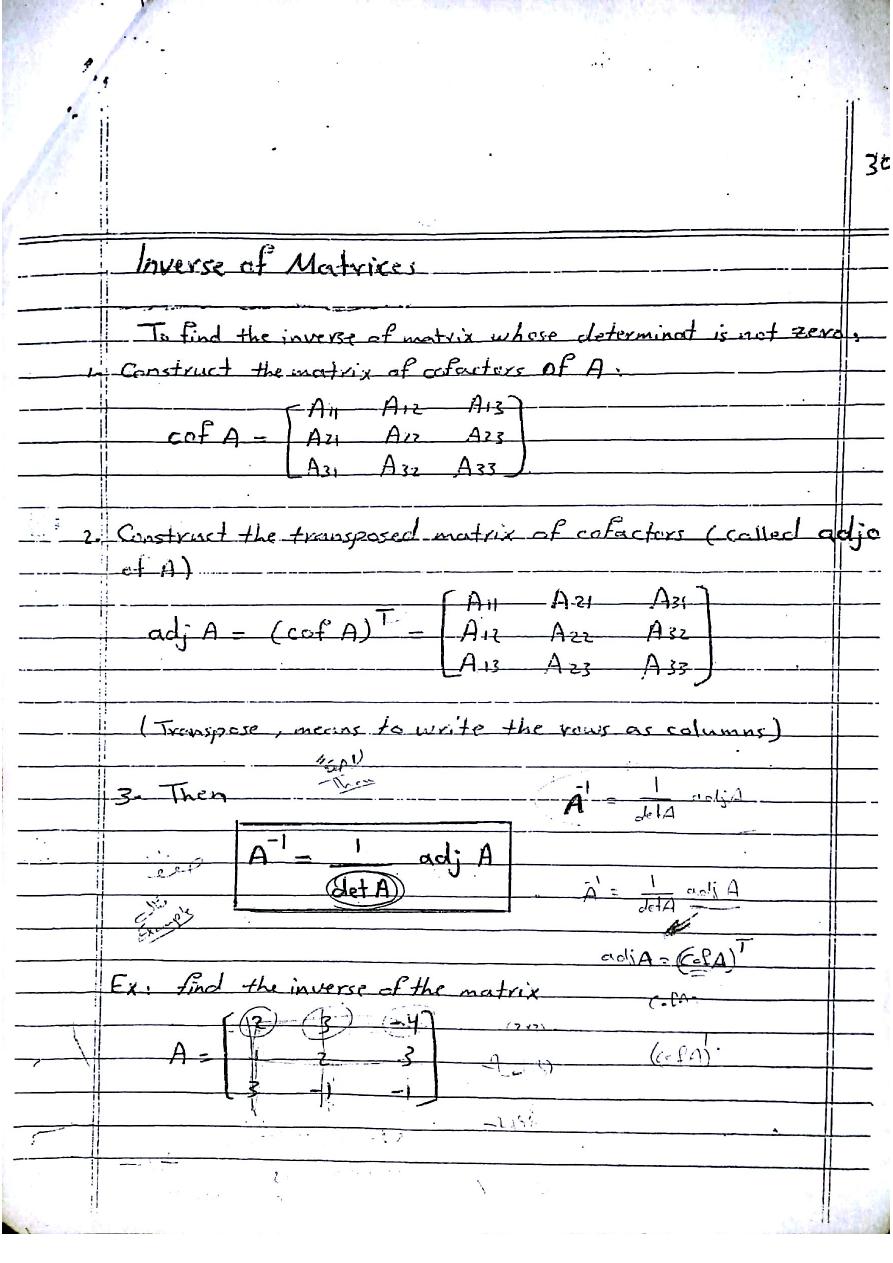 30
Inverse of Matrices
To find the inverse of matrix whose determinat is not zero,
1. Construct the matrix of cofactors of A.
cof A = [ A11 A12 A13
A21 A22 A23
A31 A32 A33 ]
2. Construct the transposed matrix of cofactors (called adjo
of A)
adj A = (cof A)^T = [ A11 A21 A31
A12 A22 A32
A13 A23 A33 ]
(Transpose, means to write the rows as columns)
3- Then
A^-1 = 1/detA adj A
A^-1 = 1/(det A) adj A
A^-1 = 1/detA adj A
Example
adj A = (Cof A)^T
Ex: find the inverse of the matrix
cof A
A = [ 2 3 -4
1 2 3
3 -1 -1 ]
(cof A)